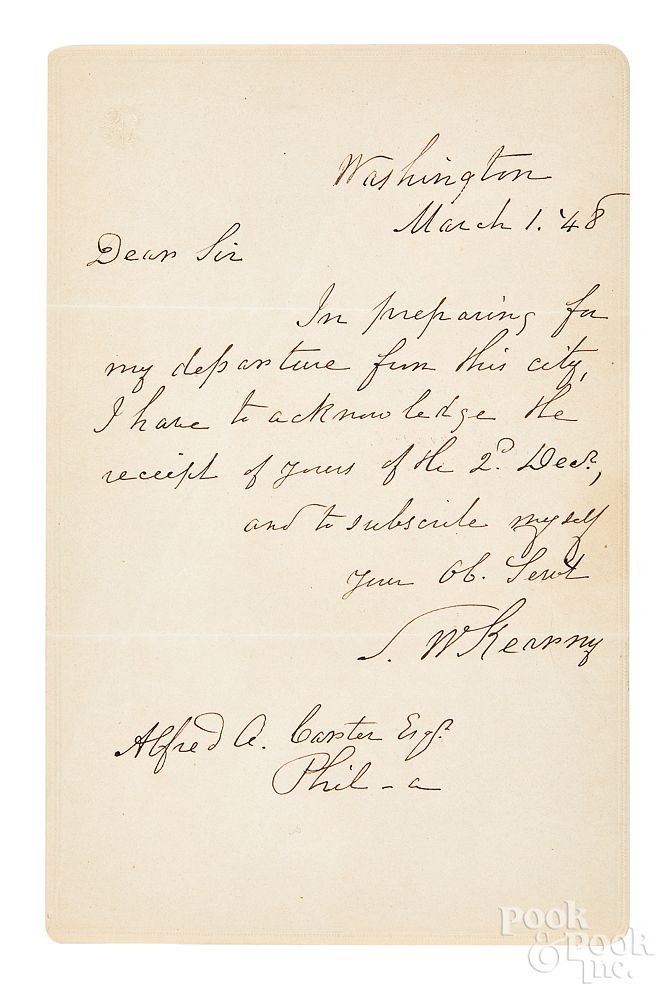 Washington
March 1. '48
Dear Sir
In preparing for
my departure from this city,
I have to acknowledge the
receipt of yours of the 2d. Decr.,
and to subscribe myself
your Ob. Servt
S. W Kearny
Alfred A. Carter Esqr.
Phil-a
POOK
& POOK
Inc.